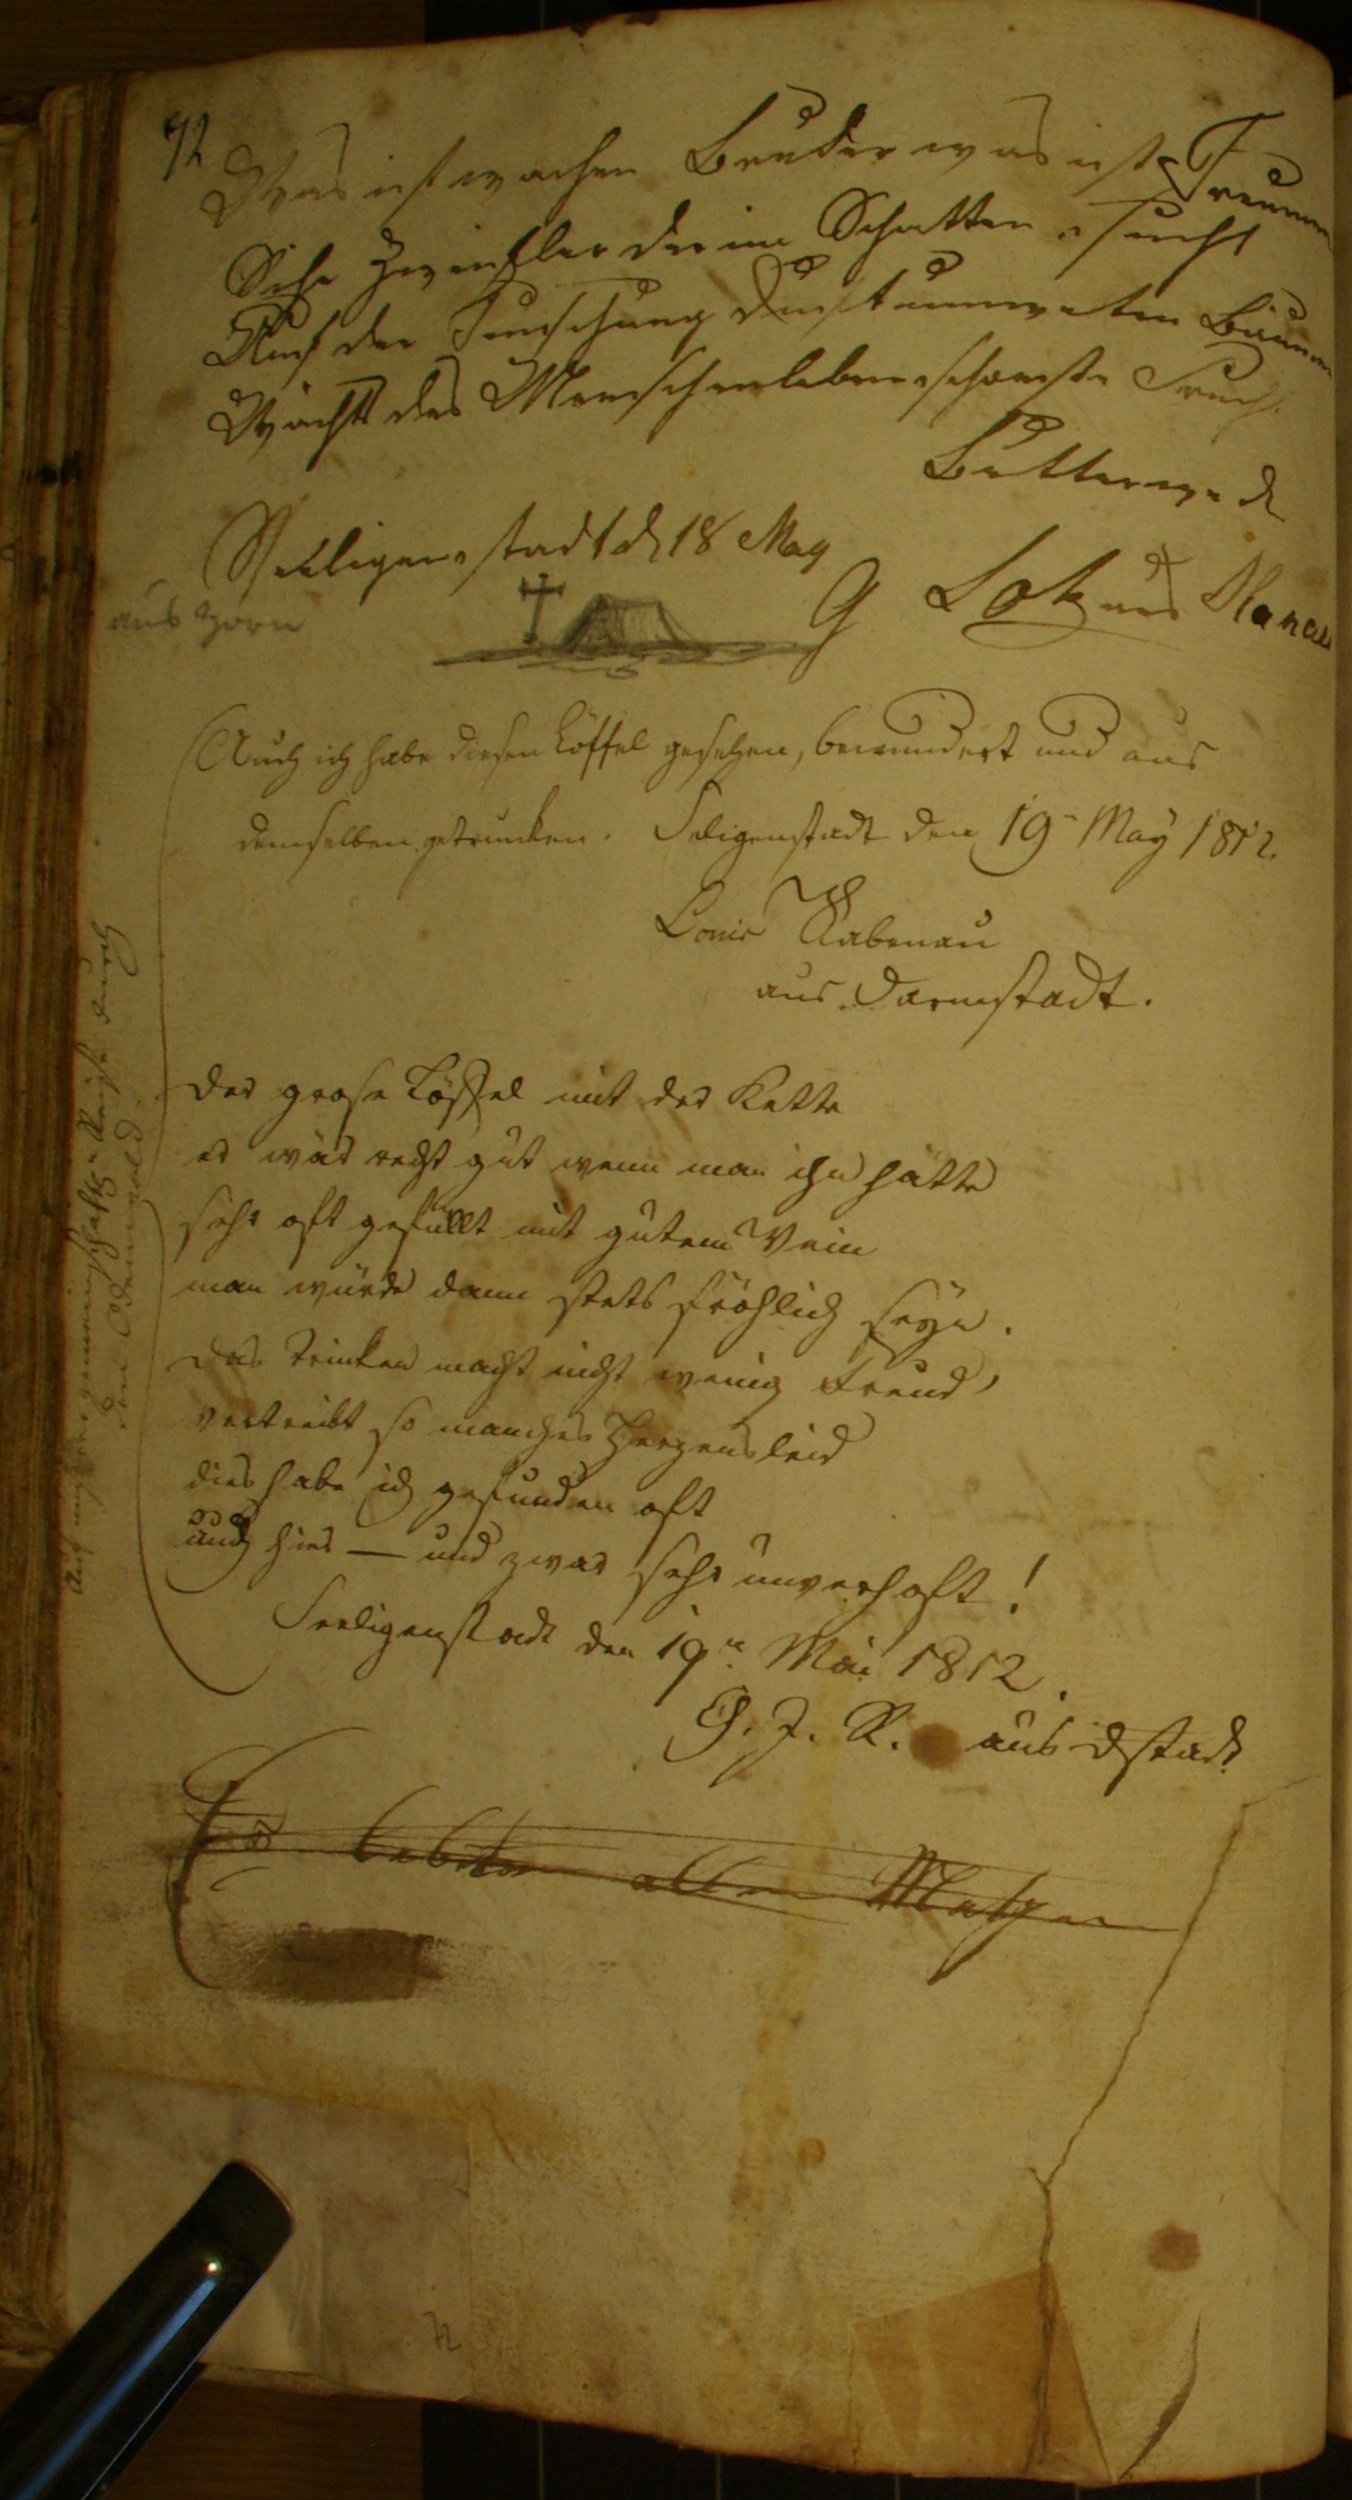 92
Was ist wachen Bruder was ist Treumen
Sehe Zweifler der im Schatten sucht
Auf der Teuschung Bäumen
Wächst des Menschenlebens schönste Frucht
Butterweck
Seeligenstadt d 18 May
G Lotz aus Hanau
aus Zorn
Auch ich habe diesen Löffel gesehen, bewundert und aus
demselben getrunken. Seligenstadt den 19 May 1812.
Louis Rabenau
aus Darmstadt.
Der grose Löffel mit der Kette
er wär recht gut wenn man ihn hätte
sehr oft gefüllt mit gutem Wein
man würde dann stets fröhlich seyn.
Das Trinken macht nicht wenig Freud'
vertreibt so manches Herzensleid
dies habe ich gefunden oft
auch hier — und zwar sehr unverhoft!
Seeligenstadt den 19n Mai 1812.
G. J. R. aus Dstadt
Auf unserer gemeinschaftl. Reise durch
den Odenwald
Es leben alle